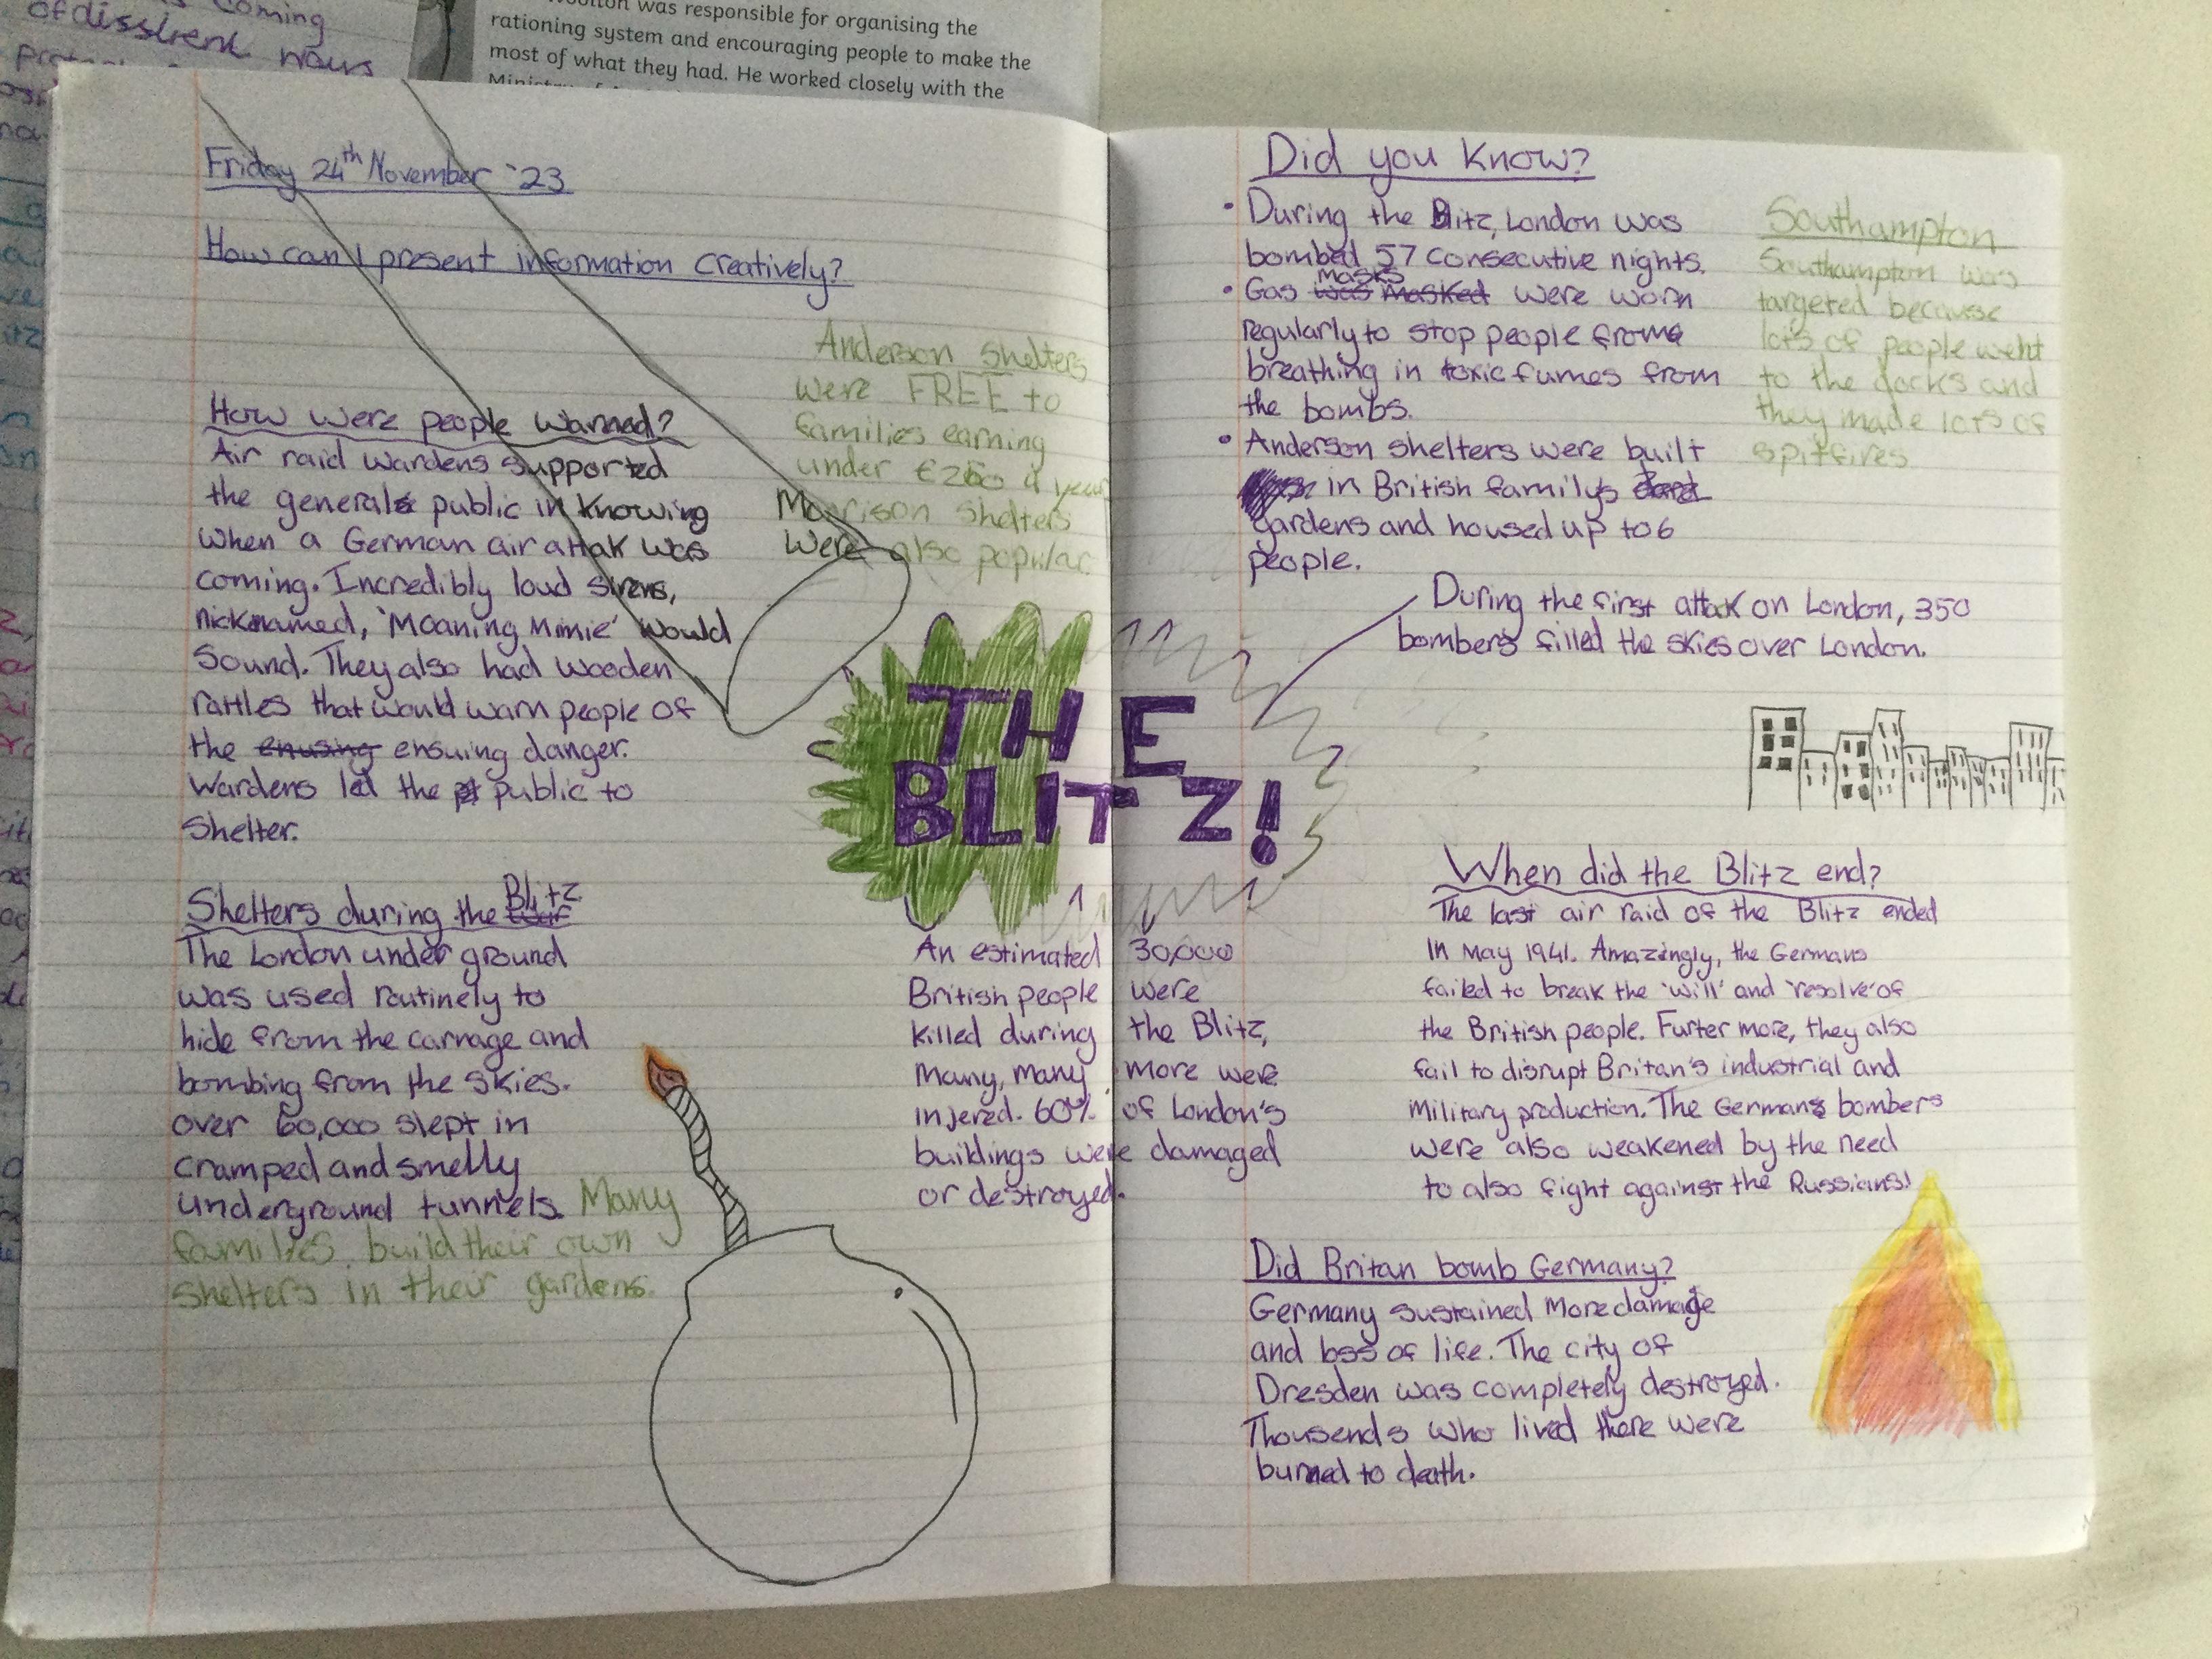 coming
of dissirent ways
Woolton was responsible for organising the
rationing system and encouraging people to make the
most of what they had. He worked closely with the
Friday 24th November '23
How can I present information creatively?
Anderson shelters
were FREE to
families earning
under
a year
Morrison shelters
were also popular.
How were people warned?
Air raid wardens supported
the general public in knowing
when a German air attak was
coming. Incredibly loud sirens,
nicknamed, 'Moaning Minie' would
sound. They also had wooden
rattles that would warn people of
the enusing ensuing danger.
Wardens led the public to
shelter.
Shelters during the war Blitz
The London under ground
was used routinely to
hide from the carnage and
bombing from the skies.
over 60,000 slept in
cramped and smelly
underground tunnels. Many
families build their own
shelters in their gardens.
THE
BLITZ!
An estimated 30,000
British people were
killed during the Blitz,
Many, many more were
injered. 60% of London's
buildings were damaged
or destroyed.
Did you know?
• During the Blitz, London was
bombed 57 consecutive nights.
• Gas was masked masks were worn
regularly to stop people from
breathing in toxic fumes from
the bombs.
• Anderson shelters were built
in British family's
gardens and housed up to 6
people.
Southampton
Southampton was
targeted because
lots of people went
to the docks and
they made lots of
spitfires
During the first attak on London, 350
bombers filled the skies over London.
When did the Blitz end?
The last air raid of the Blitz ended
In May 1941. Amazingly, the Germans
failed to break the 'will' and 'resolve' of
the British people. Furter more, they also
fail to disrupt Britan's industrial and
military production. The Germans bombers
were also weakened by the need
to also fight against the Russians!
Did Britan bomb Germany?
Germany sustained more damage
and loss of life. The city of
Dresden was completely destroyed.
Thousends who lived there were
burned to death.